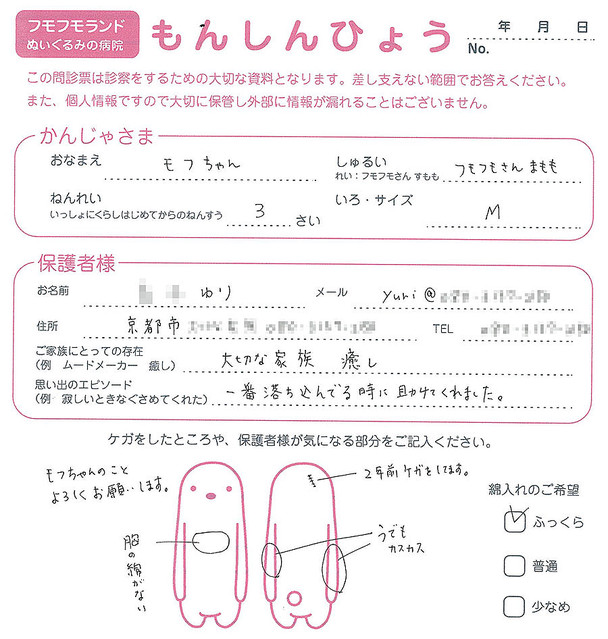 フモフモランド
ぬいぐるみの病院
もんしんひょう
年 月 日
No.
この問診票は診察をするための大切な資料となります。差し支えない範囲でお答えください。
また、個人情報ですので大切に保管し外部に情報が漏れることはございません。
かんじゃさま
おなまえ モフちゃん
しゅるい
れい:フモフモさん すもも フモフモさん まもも
ねんれい
いっしょにくらしはじめてからのねんすう 3 さい
いろ・サイズ M
保護者様
お名前 ゆり
メール yuri@
住所 京都市
TEL
ご家族にとっての存在
(例 ムードメーカー 癒し) 大切な家族 癒し
思い出のエピソード
(例 寂しいときなぐさめてくれた) 一番落ち込んでる時に助けてくれました。
ケガをしたところや、保護者様が気になる部分をご記入ください。
モフちゃんのこと
よろしくお願いします。
2年前ケガをしてます。
胸の綿がない
うでも
カスカス
綿入れのご希望
ふっくら
普通
少なめ